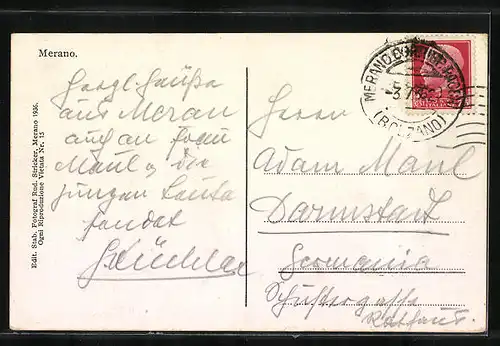 Merano.
Herzl. Grüße
aus Meran
auch an Frau
Maul u. die
jungen Leute
sendet
Edit. Stab. Fotograf Rud. Stricker, Merano 1936.
Ogni Riproduzione Vietata Nr. 15
MERANO
(BOLZANO)
Herrn
Adam Maul
Darmstadt
Germania
Schustergasse
Rathaus.